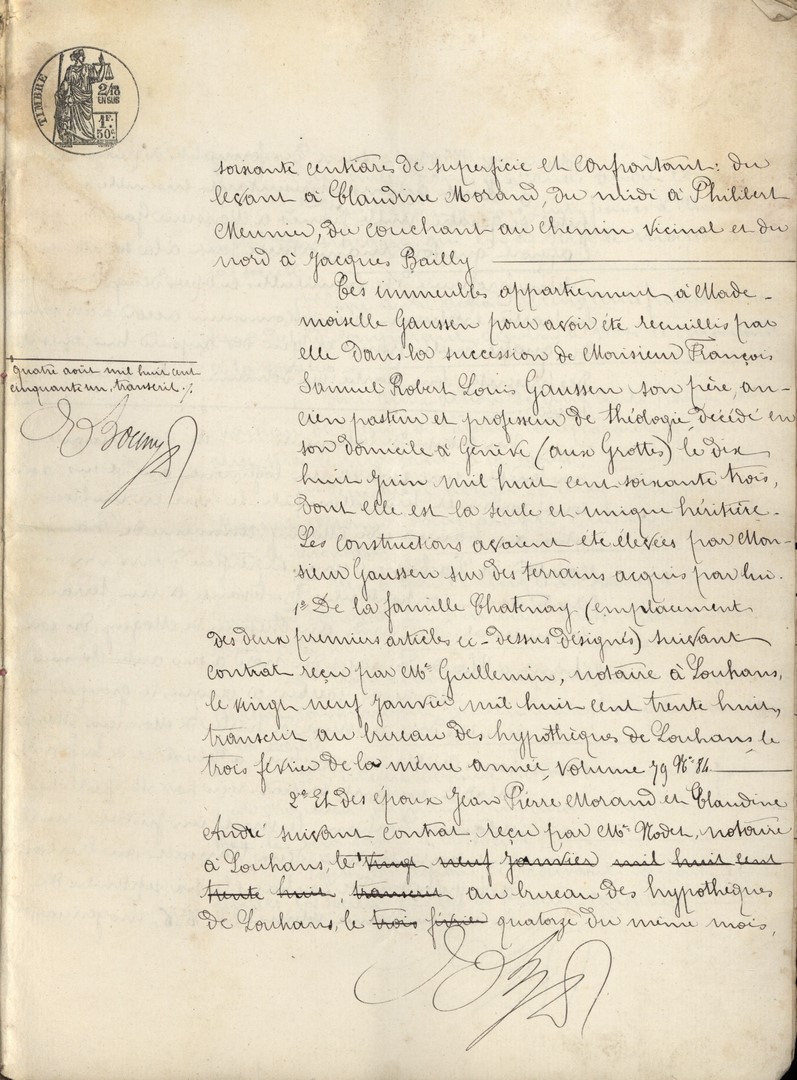 TIMBRE
2/10
EN SUS
1F.
50c
soixante centiares de superficie et confrontant: du
levant à Claudine Morand, du midi à Philibert
Meunier, du couchant au chemin vicinal et du
nord à Jacques Bailly
Ces immeubles appartiennent à Made-
moiselle Gaussen pour avoir été recueillis par
elle dans la succession de Monsieur François
Samuel Robert Louis Gaussen son père, an-
cien pasteur et professeur de théologie, décédé en
son domicile à Genève (aux Grottes) le dix
huit juin mil huit cent soixante trois,
dont elle est la seule et unique héritière.
Les constructions avaient été élevées par Mon-
sieur Gaussen sur des terrains acquis par lui.
1º De la famille Chatenay (emplacement
des deux premiers articles ci-dessus désignés) suivant
contrat reçu par Me Guillemin, notaire à Louhans,
le vingt neuf Janvier mil huit cent trente huit,
transcrit au bureau des hypothèques de Louhans, le
trois février de la même année, volume 79 Nº 84
2º Et des époux Jean Pierre Morand et Claudine
André suivant contrat reçu par Me Nodet, notaire
à Louhans, le vingt neuf Janvier mil huit cent
trente huit, transcrit au bureau des hypothèques
de Louhans, le trois février quatorze du même mois,
quatre août mil huit cent
cinquante un, transcrit